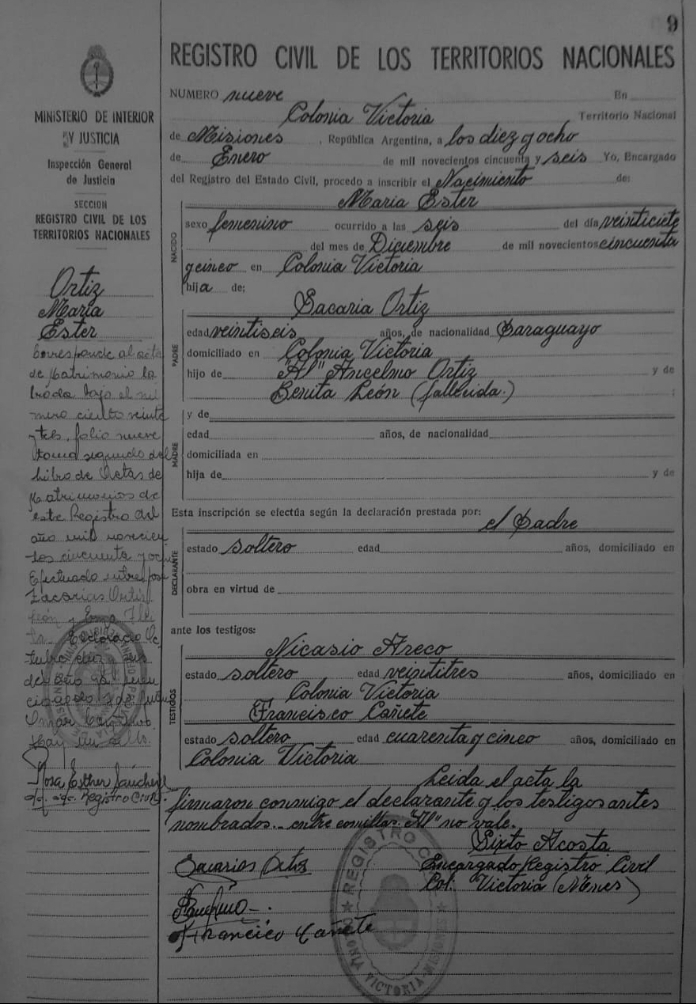 9
REGISTRO CIVIL DE LOS TERRITORIOS NACIONALES
MINISTERIO DE INTERIOR
Y JUSTICIA
Inspección General
de Justicia
SECCION
REGISTRO CIVIL DE LOS
TERRITORIOS NACIONALES
Ortiz
Maria
Ester
Corresponde al acta
de Matrimonio la
brada bajo el nú
mero ciento veinte
y tres, folio nueve
tomo segundo del
libro de Actas de
Matrimonios de
este Registro del
año mil novecien
tos cincuenta y
Efectuado entre José
Zacarias Ortiz
León y
Rosa Esther
Registro Civil
NUMERO nueve En
Colonia Victoria Territorio Nacional
de Misiones, República Argentina, a los diez y ocho
de Enero de mil novecientos cincuenta y seis Yo, Encargado
del Registro del Estado Civil, procedo a inscribir el Nacimiento de:
NACIDO
Maria Ester
sexo femenino ocurrido a las seis del día veinticiete
del mes de Diciembre de mil novecientos cincuenta
y cinco en Colonia Victoria
hija de:
PADRE
Sacaria Ortiz
edad veintiseis años, de nacionalidad Paraguayo
domiciliado en Colonia Victoria
hijo de "Al" Ancelmo Ortiz y de
Benita León (fallecida.) ;
MADRE
y de
edad años, de nacionalidad
domiciliada en
hija de y de
Esta inscripción se efectúa según la declaración prestada por:
el Padre
DECLARANTE
estado soltero edad años, domiciliado en
obra en virtud de
ante los testigos:
TESTIGOS
Nicasio Areco
estado soltero edad veintitres años, domiciliado en
Colonia Victoria
Francisco Cañete
estado soltero edad cuarenta y cinco años, domiciliado en
Colonia Victoria
Leida el acta la
firmaron conmigo el declarante y los testigos antes
nombrados.- entre comillas "Al" no vale.
Sixto Acosta
Encargado Registro Civil
Col. Victoria (Mnes)
Sacarias Ortis
Francico Cañete
REGISTRO
COLONIA VICTORIA